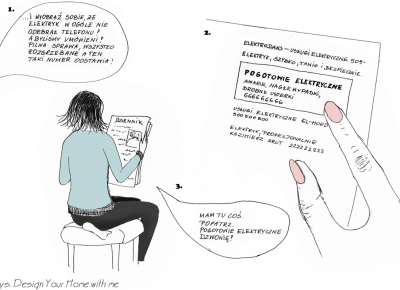 1.
...I WYOBRAŹ SOBIE, ŻE
ELEKTRYK W OGÓLE NIE
ODEBRAŁ TELEFONU?
A BYLIŚMY UMÓWIENI!
PILNA SPRAWA, WSZYSTKO
ROZGRZEBANE A TEN
TAKI NUMER ODSTAWIA!
DZIENNIK
2.
USŁUGI ELEKTRYCZNE SOS-
ELEKTRYK, SZYBKO, TANIO I BEZPIECZNIE.
POGOTOWIE ELEKTRYCZNE
AWARIE, NAGŁE WYPADKI,
DROBNE USTERKI
666666666
USŁUGI ELEKTRYCZNE EL-NORD
500 500 500
ELEKTRYK, PROFESJONALNIE
KAZIMIERZ PRUT 222222222
3.
MAM TU COŚ.
POPATRZ,
POGOTOWIE ELEKTRYCZNE
DZWONIĘ?
ys. Design Your Home with me